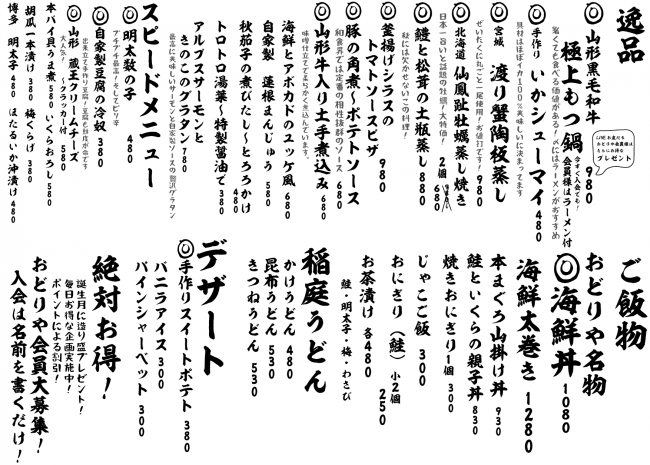 逸品
◎山形黒毛和牛
極上もつ鍋 980
今すぐ入会でも!
会員様はラーメン付
驚くでも食べる価値がある!〆にはラーメンがおすすめ
LINEお友だち
おどりや会員様は
さらにお得な
プレゼント
◎手作り いかシューマイ 480
具材はほぼイカ!100%美味しいに決まってます
◎宮城 渡り蟹陶板蒸し 980
ぜいたくにたれごと一尾使用!お値打です!
◎北海道 仙鳳趾牡蠣蒸し焼き 2個 680
日本一旨いと話題の牡蠣!大特価!
◎鱧と松茸の土瓶蒸し 880
秋には欠かせないこの料理!
釜揚げシラスの
トマトソースピザ 980
◎豚の角煮〜ポテトソース 680
和食界では定番の相性抜群のソース
◎山形牛入り土手煮込み 680
味噌仕立てでまろやかく煮込んでいます。
海鮮とアボカドのユッケ風 680
自家製 蓮根まんじゅう 580
秋茄子の煮びたし〜とろろかけ 480
トロトロ湯葉〜特製醤油で 380
アルプスサーモンと
きのこのグラタン 780
最高に美味しいサーモンと自家製ソースの贅沢グラタン
スピードメニュー
◎明太数の子 480
プチプチ最高!そしてピリ辛
◎自家製豆腐の冷奴 380
出来立て手作り豆腐!豆腐と鮮度が命です
◎山形 蔵王クリームチーズ 580
大人気! 〜クラッカー付
本バイ貝うま煮 580 いくらおろし 580
胡瓜一本漬け 380 梅くらげ 380
博多 明太子 480 ほたるいか沖漬け 480
ご飯物
おどりや名物
◎海鮮丼 1080
海鮮太巻き 1280
本まぐろ山掛け丼 930
鮭といくらの親子丼 830
焼きおにぎり1個 300
じゃこご飯 300
おにぎり(鮭) 小2個 250
お茶漬け 各480
鮭・明太子・梅・わさび
稲庭うどん
かけうどん 480
昆布うどん 530
きつねうどん 530
デザート
◎手作りスイートポテト 380
バニラアイス 300
パインシャーベット 300
絶対お得!
誕生月に造り盛プレゼント!
毎日お得な企画実施中!
ポイントによる割引!
おどりや会員大募集!
入会は名前を書くだけ!